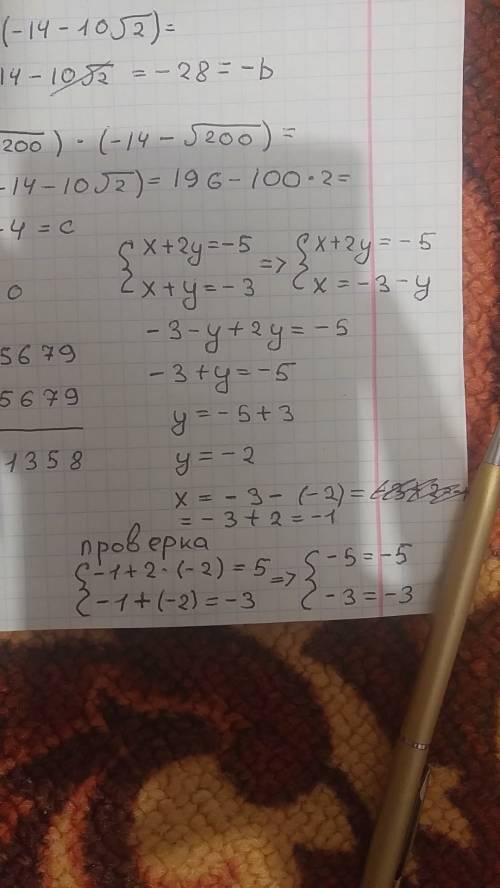 (-14-10√2)=
14-10√2 = -28 = -b
√200) · (-14-√200) =
-14-10√2) = 196-100·2=
-4 = c
{x+2y=-5 => {x+2y=-5
{x+y=-3 {x=-3-y
0
-3-y+2y=-5
5679
-3+y=-5
5679
y=-5+3
1358
y=-2
x=-3-(-2)=
=-3+2=-1
проверка
{-1+2·(-2)=5 => {-5=-5
{-1+(-2)=-3 {-3=-3